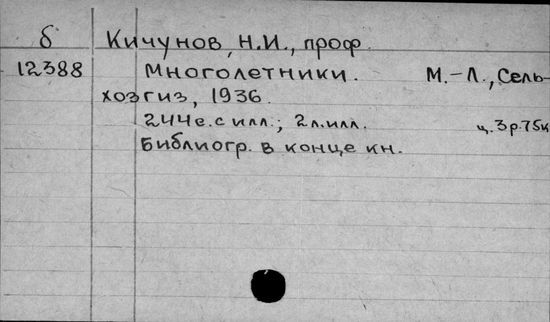 б Кичунов, Н.И., проф.
12388 Многолетники. М.-Л., Сель-
хозгиз, 1936.
244 с. с илл.; 2 л. илл. ц. 3 р. 75 к
Библиогр. в конце кн.